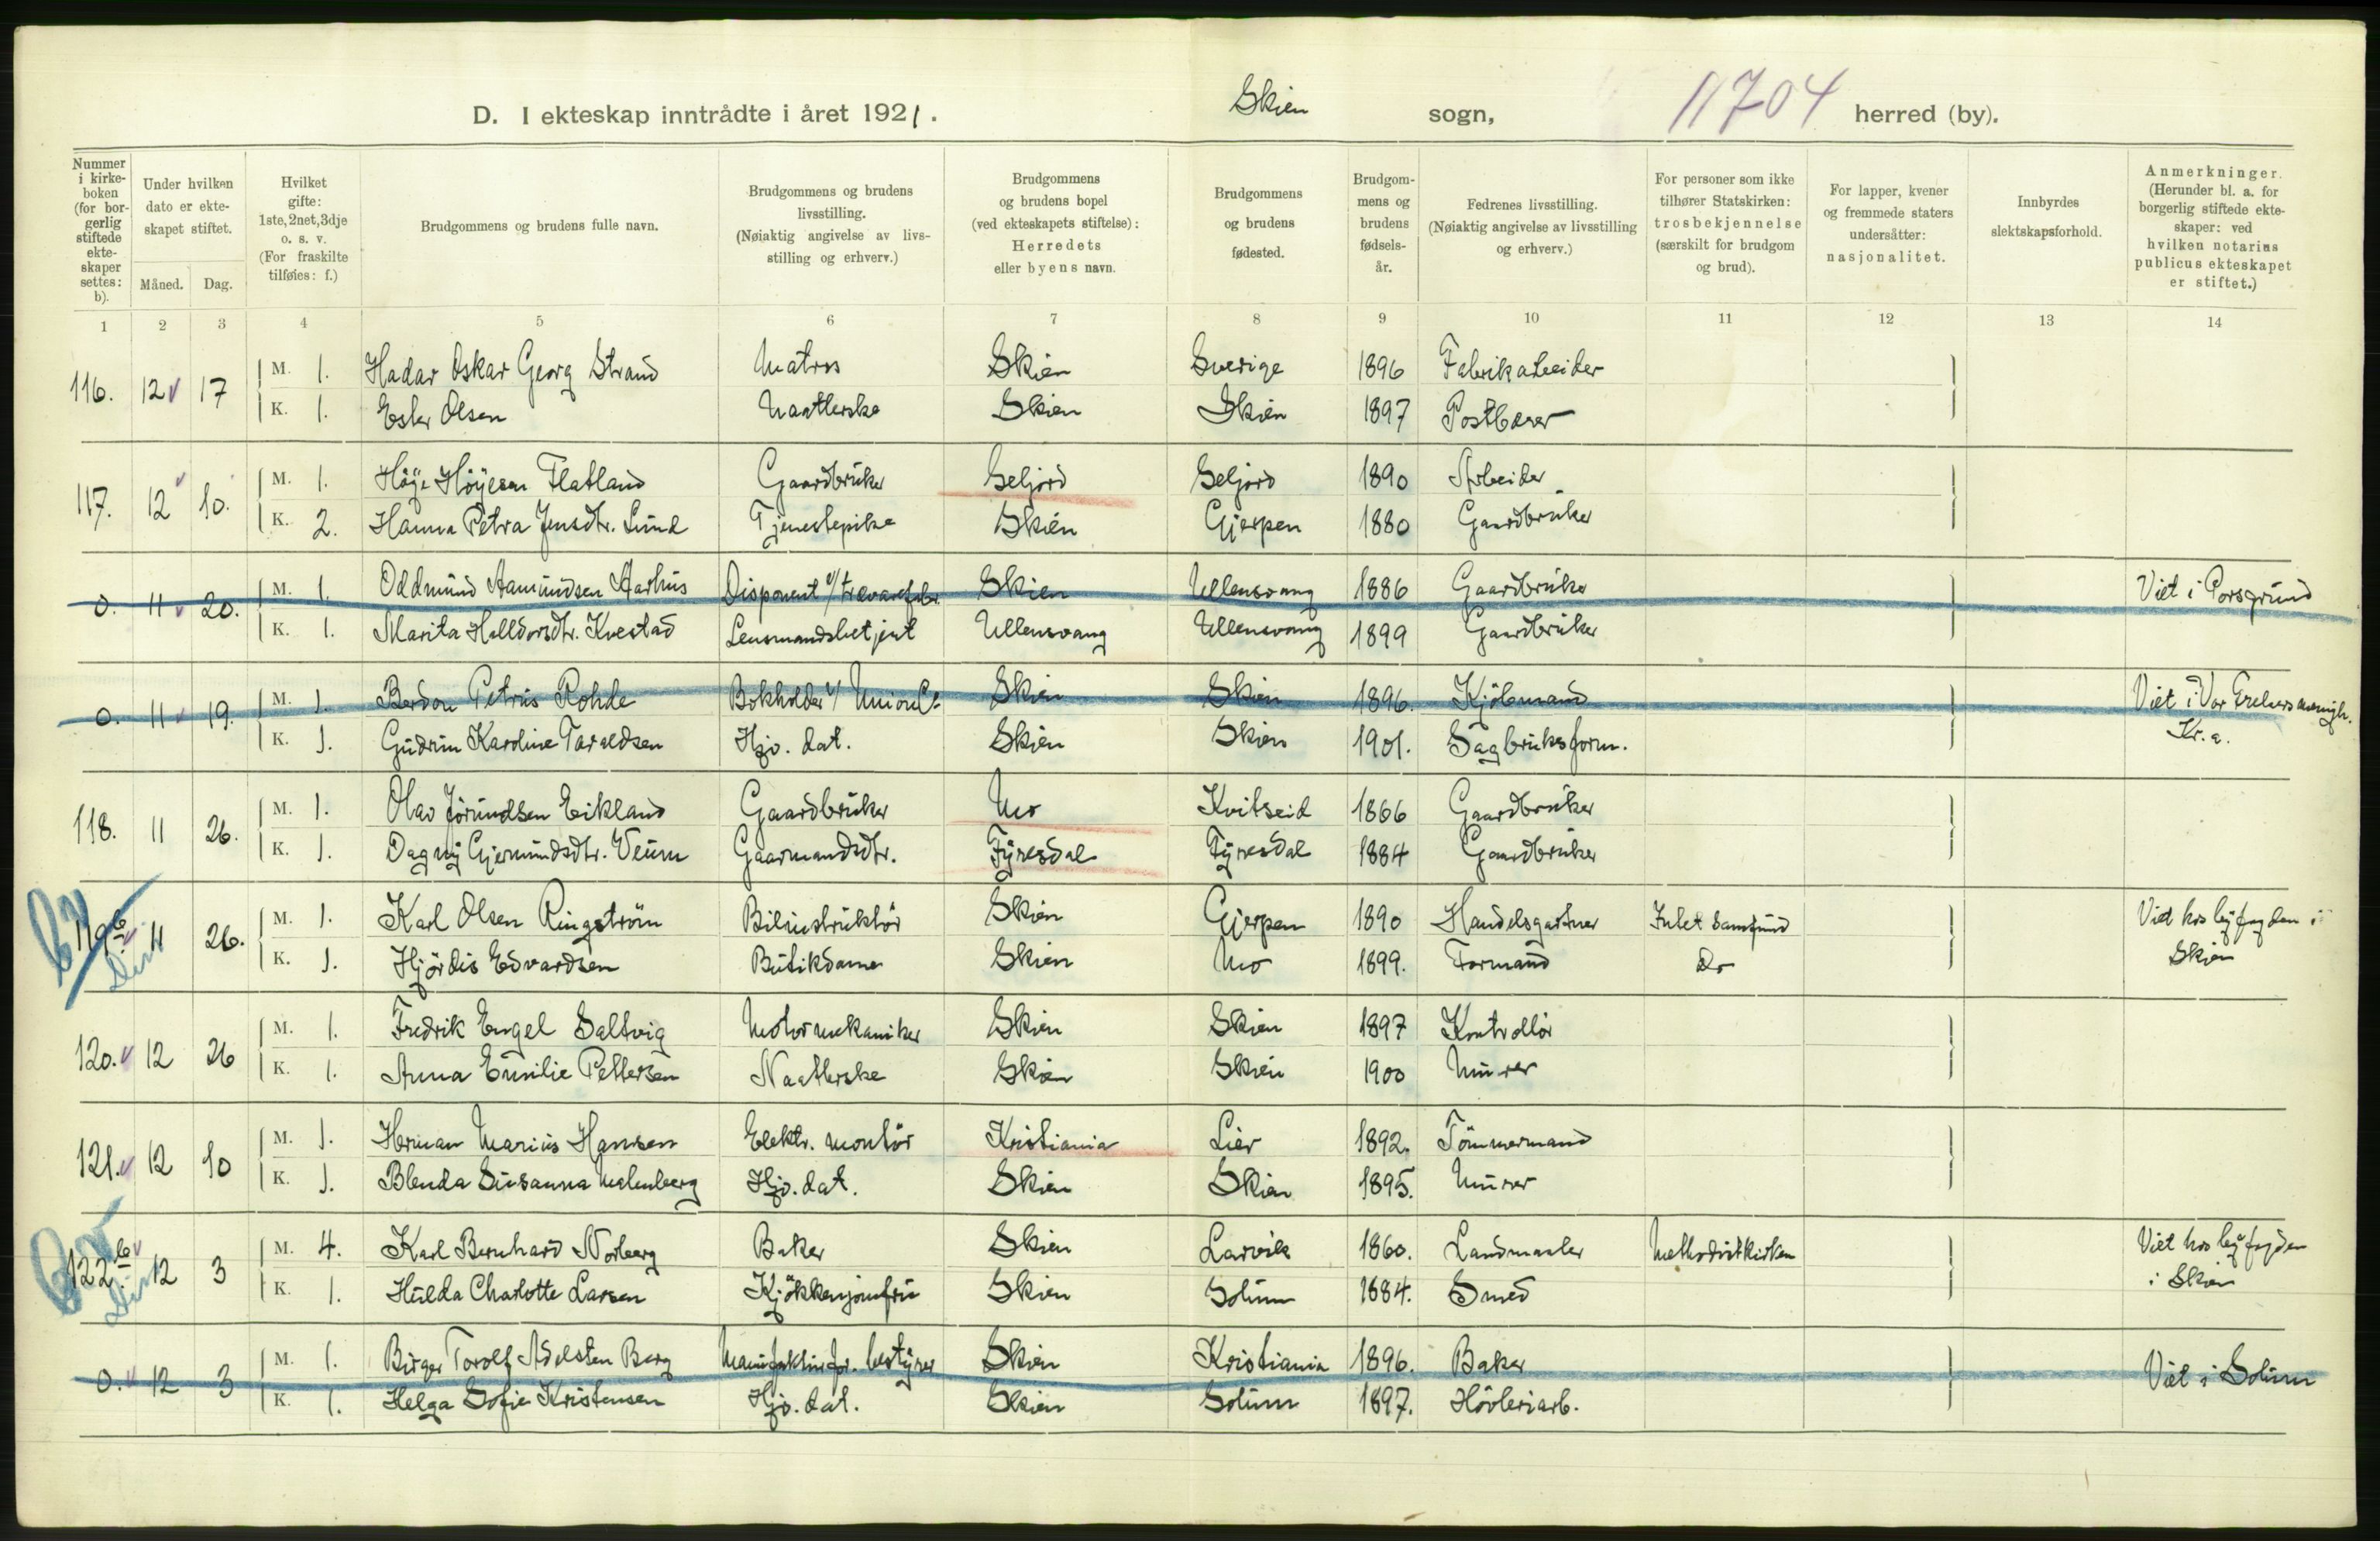 D. I ekteskap inntrådte i året 1921. Skien sogn, 11704 herred (by).
Nummer i kirkeboken (for borgerlig stiftede ekteskaper settes: b).
Under hvilken dato er ekteskapet stiftet.
Måned. Dag.
Hvilket gifte: 1ste, 2net, 3dje o. s. v. (For fraskilte tilføies: f.)
Brudgommens og brudens fulle navn.
Brudgommens og brudens livsstilling. (Nøiaktig angivelse av livsstilling og erhverv.)
Brudgommens og brudens bopel (ved ekteskapets stiftelse): Herredets eller byens navn.
Brudgommens og brudens fødested.
Brudgommens og brudens fødselsår.
Fedrenes livsstilling. (Nøiaktig angivelse av livsstilling og erhverv.)
For personer som ikke tilhører Statskirken: trosbekjennelse (særskilt for brudgom og brud).
For lapper, kvener og fremmede staters undersåtter: nasjonalitet.
Innbyrdes slektskapsforhold.
Anmerkninger. (Herunder bl. a. for borgerlig stiftede ekteskaper: ved hvilken notarius publicus ekteskapet er stiftet.)
1 2 3 4 5 6 7 8 9 10 11 12 13 14
116. 12 17 M. 1. Hadar Oskar Georg Strand Matros Skien Sverige 1896 Fabrikarbeider
K. 1. Ester Olsen Naatlerske Skien Skien 1897 Postbærer
117. 12 10. M. 1. Høye Høyesen Flatland Gaardbruker Seljord Seljord 1890 Arbeider
K. 2. Hanna Petra Jensdtr. Lund Tjenestepike Skien Gjerpen 1880 Gaardbruker
0. 11 20. M. 1. Oddmund Aamundsen Aarhus Disponent v/ trævarefabr. Skien Ullensvang 1886 Gaardbruker Viet i Porsgrund
K. 1. Marita Halldorsdtr. Kvestad Lensmandsbetjent Ullensvang Ullensvang 1899 Gaardbruker
0. 11 19. M. 1. Berdon Petrus Rohde Bokholder v/ Union Co Skien Skien 1896. Kjøbmand Viet i Vor Frelsers menigh.
K. 1. Gudrun Karoline Taraldsen Hjv. dat. Skien Skien 1901. Sagbruksform. Kr.a.
118. 11 26. M. 1. Olav Jørundsen Eikland Gaardbruker Mo Kvitseid 1866 Gaardbruker
K. 1. Dagny Gjermundsdtr. Veum Gaarmandsdtr. Fyresdal Fyresdal 1884 Gaardbruker
119 b 11 26. M. 1. Karl Olsen Ringstrøm Bilinstruktør Skien Gjerpen 1890 Handelsgartner Intet samfund Viet hos byfogden i
K. 1. Hjørdis Edvardsen Butikdame Skien Mo 1899. Formand Do Skien
120. 12 26 M. 1. Fredrik Engel Saltvig Motormekaniker Skien Skien 1897 Kontrollør
K. 1. Anna Emilie Pettersen Naatlerske Skien Skien 1900 Murer
121. 12 10 M. 1. Herman Marius Hansen Elektr. montør Kristiania Lier 1892. Tømmermand
K. 1. Blenda Susanna Malmberg Hjv. dat. Skien Skien 1895. Murer
122 b. 12 3 M. 4. Karl Bernhard Norberg Baker Skien Larvik 1860. Landmaaler Methodistkirken Viet hos byfogden
K. 1. Hulda Charlotte Larsen Kjøkkenjomfru Skien Solum 1884. Smed i Skien
0. 12 3 M. 1. Birger Torolf Adelsten Berg Manufakturfor. bestyrer Skien Kristiania 1896. Baker Viet i Solum
K. 1. Helga Sofie Kristensen Hjv. dat. Skien Solum 1897. Høvleriarb.